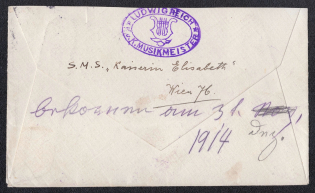 LUDWIG REICH
K. MUSIKMEISTER
S.M.S. „Kaiserin Elisabeth"
Wien 76
bekommen am 31.
Dez.
1914